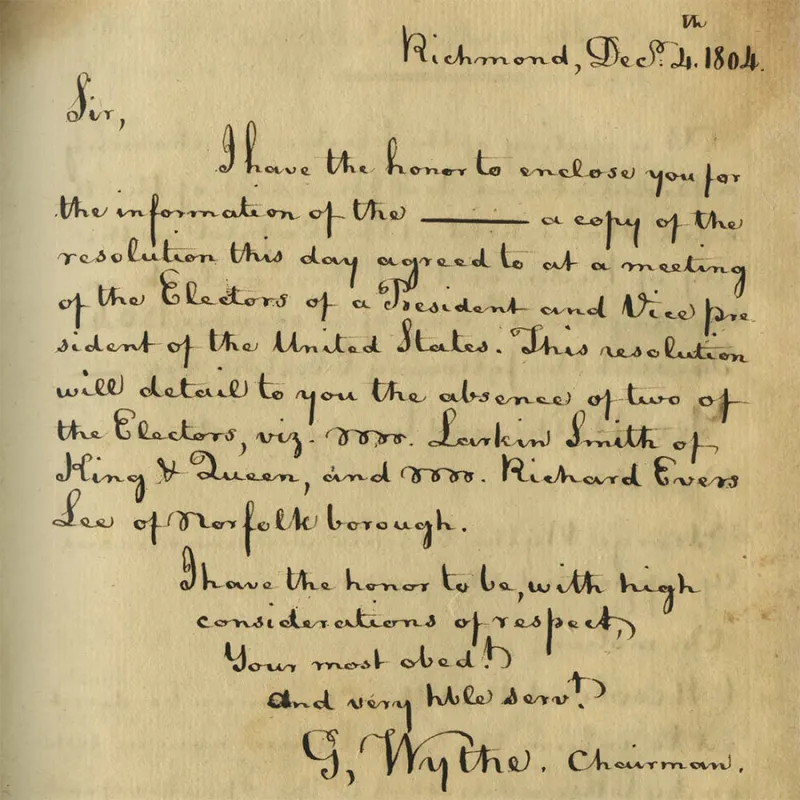 Richmond, Decr. 4th. 1804.
Sir,
I have the honor to enclose you for
the information of the ——— a copy of the
resolution this day agreed to at a meeting
of the Electors of a President and Vice pre
sident of the United States. This resolution
will detail to you the absence of two of
the Electors, viz. Larkin Smith of
King & Queen, and Richard Evers
Lee of Norfolk borough.
I have the honor to be, with high
considerations of respect,
Your most obedt.
and very hble servt.
G, Wythe. Chairman.